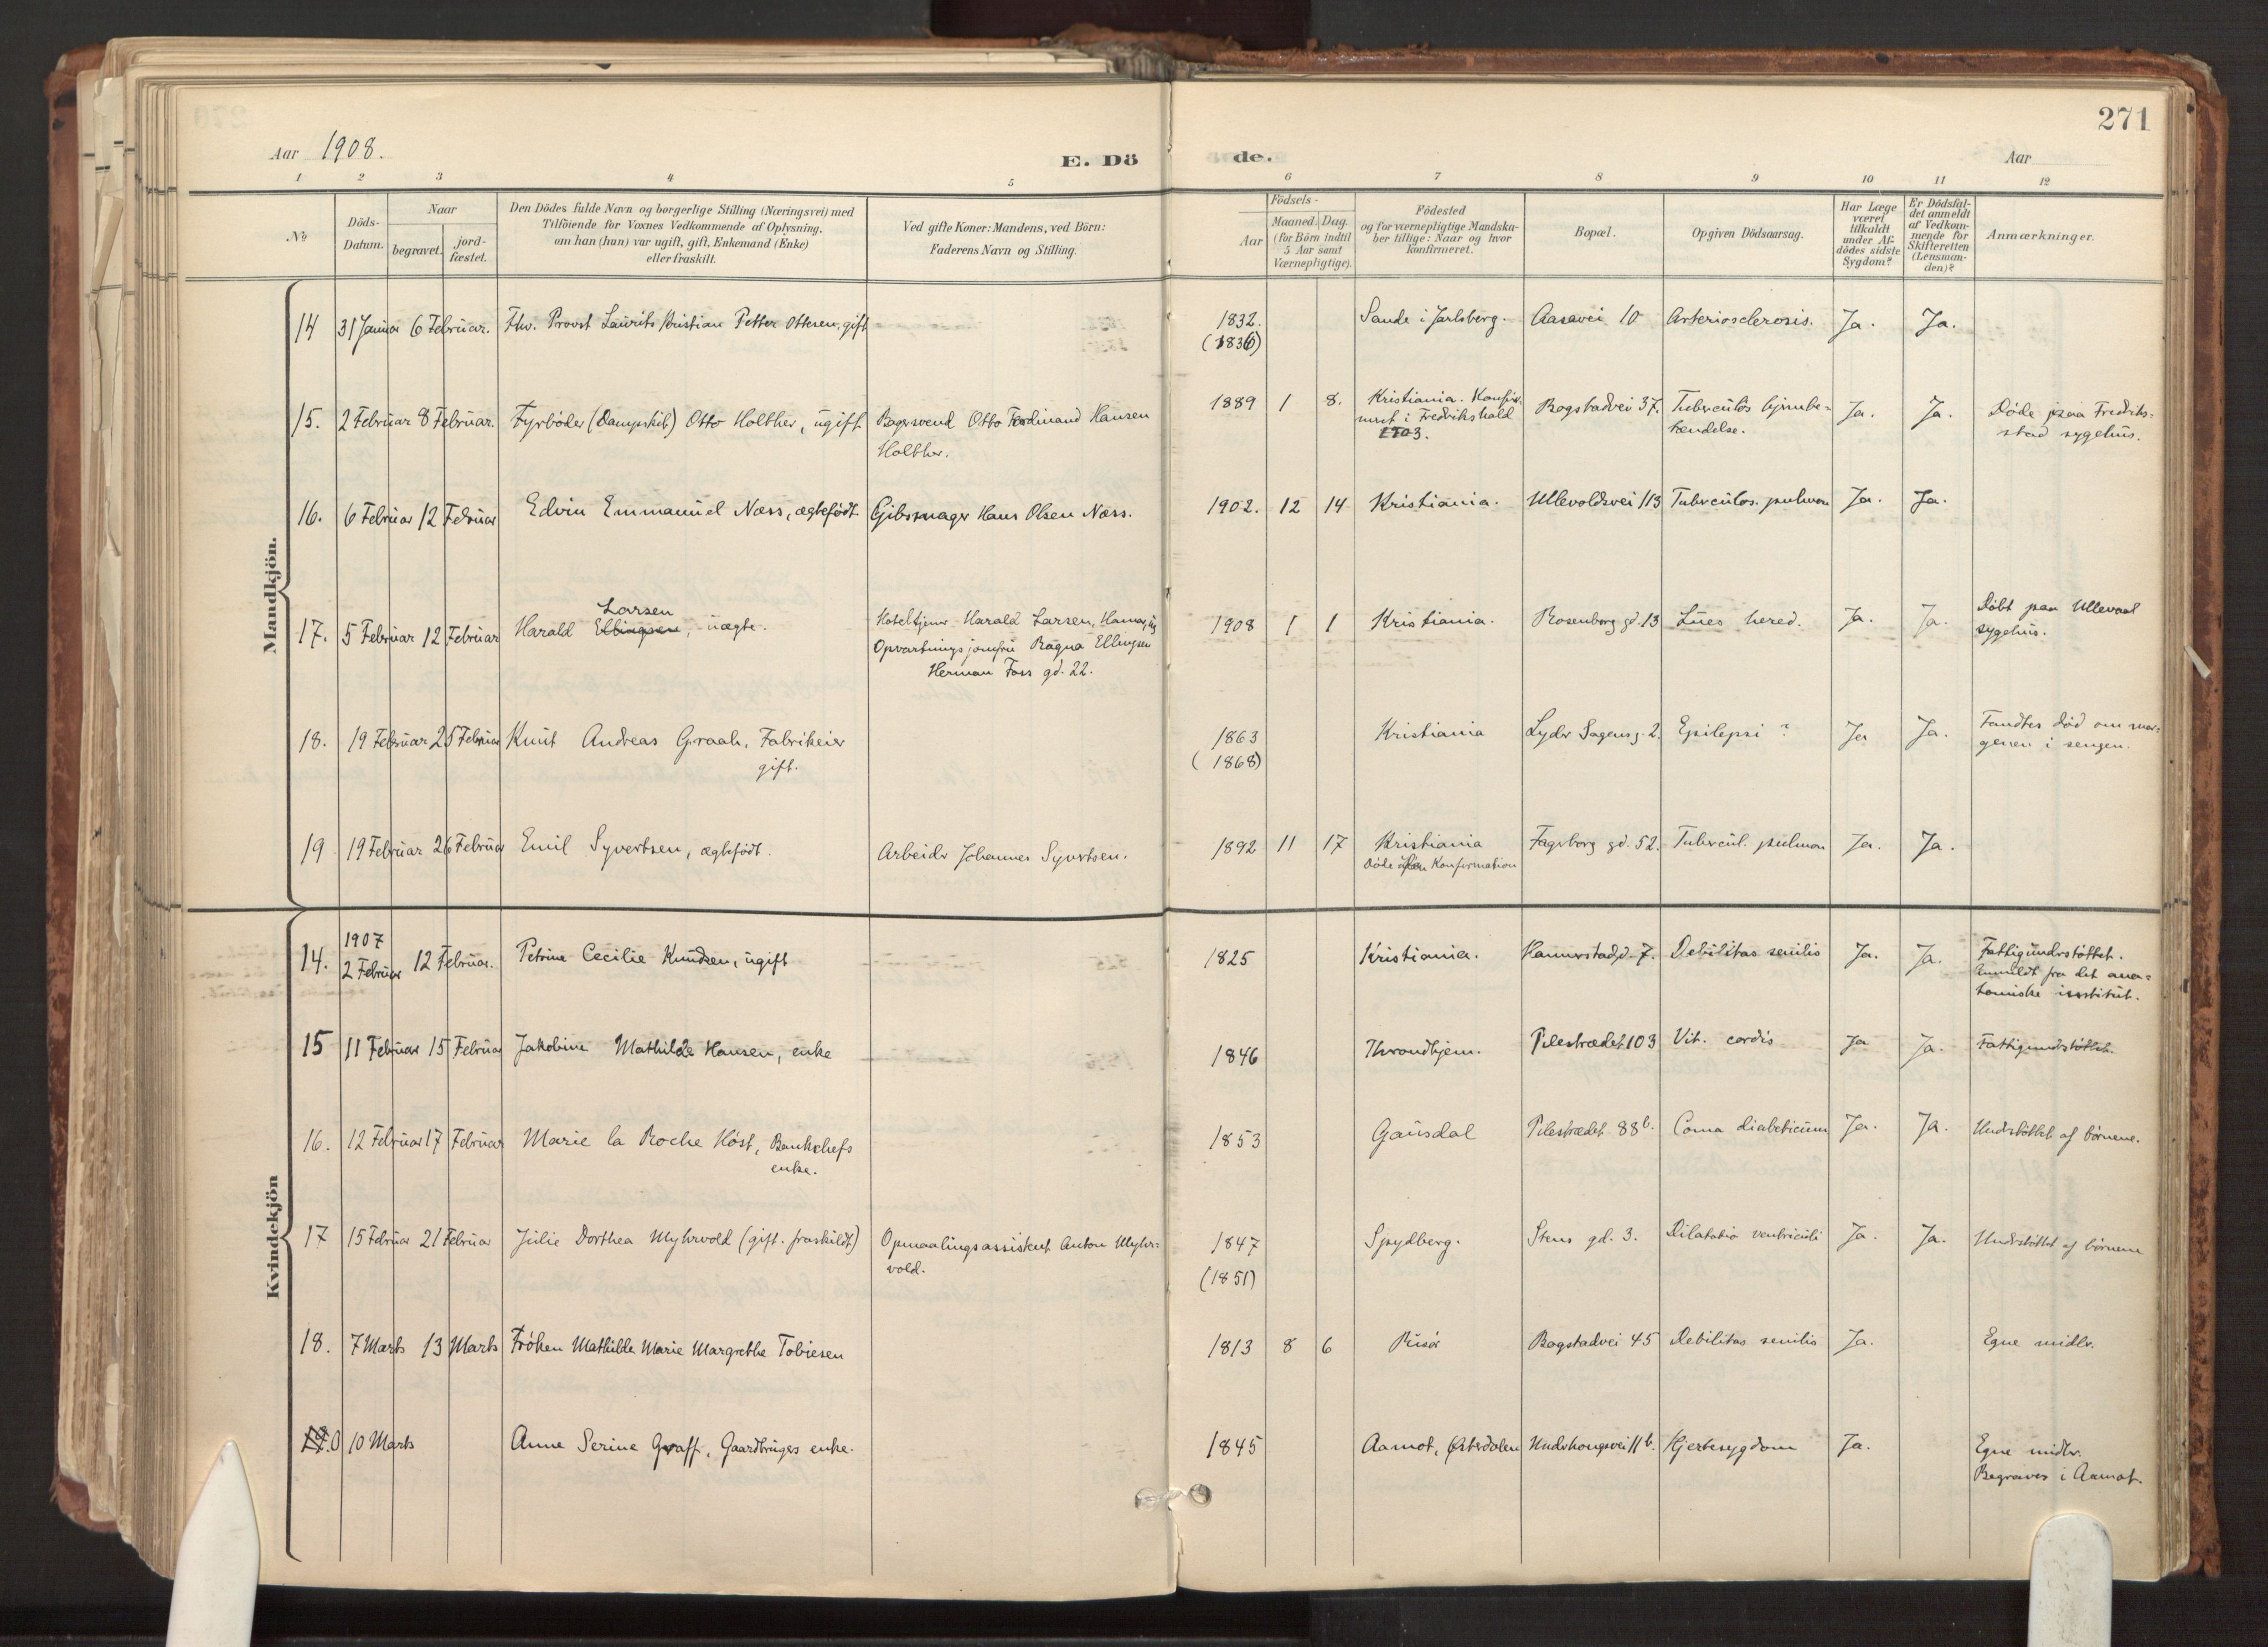 271
Aar 1908.
E. Dö de.
Aar
1 2 3 4 5 6 7 8 9 10 11 12
No
Döds-Datum.
Naar
begravet.
jord-fæstet.
Den Dödes fulde Navn og borgerlige Stilling (Næringsvei) med
Tilföiende for Voxnes Vedkommende af Oplysning,
om han (hun) var ugift, gift, Enkemand (Enke)
eller fraskilt.
Ved gifte Koner: Mandens, ved Börn:
Faderens Navn og Stilling.
Födsels-
Aar
Maaned. Dag.
(for Börn indtil
5 Aar samt
Værnepligtige).
Födested
og for værnepligtige Mandska-
ber tillige: Naar og hvor
konfirmeret.
Bopæl.
Opgiven Dödsaarsag.
Har Læge
været
tilkaldt
under Af-
dödes sidste
Sygdom?
Er Dödsfal-
det anmeldt
af Vedkom-
mende for
Skifteretten
(Lensman-
den)?
Anmærkninger.
Mandkjön.
14 31 Januar 6 Februar. Fhv. Provst Laurits Kristian Petter Ottesen, gift 1832. Sande i Jarlsberg. Aasavei 10 Arteriosclerosis. Ja. Ja.
(1836)
15. 2 Februar 8 Februar. Fyrbøder (Dampskib) Otto Holther, ugift. Bagersvend Otto Ferdinand Hansen 1889 1 8. Kristiania. Konfir- Bogstadvei 37. Tuberculøs hjernebe- Ja. Ja. Døde paa Fredrik-
Holther. meret i Fredrikshald tændelse. stad sygehus.
1903.
16. 6 Februar 12 Februar Edvin Emmanuel Næss, ægtefødt Gibsmager Hans Olsen Næss. 1902. 12 14 Kristiania. Ullevoldsvei 113 Tuberculos. pulmon Ja. Ja.
Larsen
17. 5 Februar 12 Februar Harald Ellingsen, uægte. Hoteltjener Harald Larsen, Hamar, og 1908 1 1 Kristiania. Rosenborg gd. 13 Lues hered. Ja. Ja. Døbt paa Ullevaal
Opvartningsjomfru Ragna Ellingsen sygehus.
Herman Foss gd. 22.
18. 19 Februar 25 Februar Knut Andreas Graah, Fabrikeier 1863 Kristiania Lyder Sagens g. 2. Epilepsi? Ja Ja. Fandtes død om mor-
gift. (1868) genen i sengen.
19 19 Februar 26 Februar Emil Syvertsen, ægtefødt. Arbeider Johannes Syvertsen. 1892 11 17 Kristiania Fagerborg gd. 52. Tubercul. pulmon Ja. Ja.
Døde før Konfirmation
Kvindekjön
1907
14. 2 Februar 12 Februar. Petrine Cecilie Knudsen, ugift 1825 Kristiania. Hammerstadg. 7. Debilitas senilis Ja. Ja. Fattigunderstøttet.
Anmeldt fra det ana-
tomiske institut.
15 11 Februar 15 Februar Jakobine Mathilde Hansen, enke 1846 Throndhjem. Pilestrædet 103 Vit. cordis Ja Ja. Fattigunderstøttet.
16. 12 Februar 17 Februar Marie la Roche Høst, Bankchefs 1853 Gausdal Pilestrædet 88b. Coma diabeticum Ja. Ja. Understøttet af børnene.
enke.
17 15 Februar 21 Februar Julie Dorthea Myhrvold (gift. fraskildt) Opmaalingsassistent Anton Myhr- 1847 Spydberg. Stens gd. 3. Dilatatio ventriculi Ja. Ja. Understøttet af børnene
vold. (1851)
18. 7 Marts 13 Marts Frøken Mathilde Marie Margrethe Tobiesen 1813 8 6 Risør Bogstadvei 45 Debilitas senilis Ja. Egne midler.
19. 0 10 Marts Anne Serine Graff, Gaardbrugers enke. 1845 Aamot, Østerdalen Underhaugsvei 11 b. Hjertesygdom Ja. Egne midler.
Begraves i Aamot.